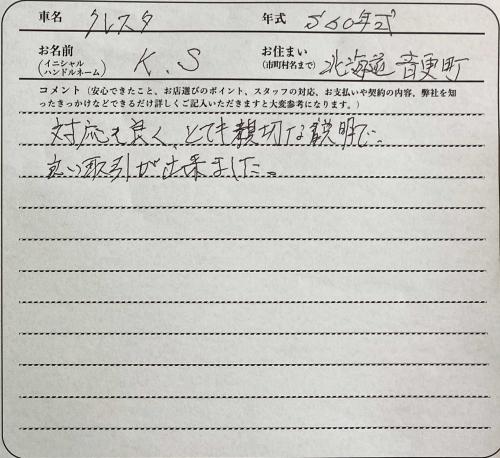 車名 クレスタ 年式 S60年式
お名前 (イニシャル ハンドルネーム) K.S お住まい (市町村名まで) 北海道 音更町
コメント（安心できたこと、お店選びのポイント、スタッフの対応、お支払いや契約の内容、弊社を知
ったきっかけなどできるだけ詳しくご記入いただきますと大変参考になります。）
対応も良く、とても親切な説明で
良い取引が出来ました。